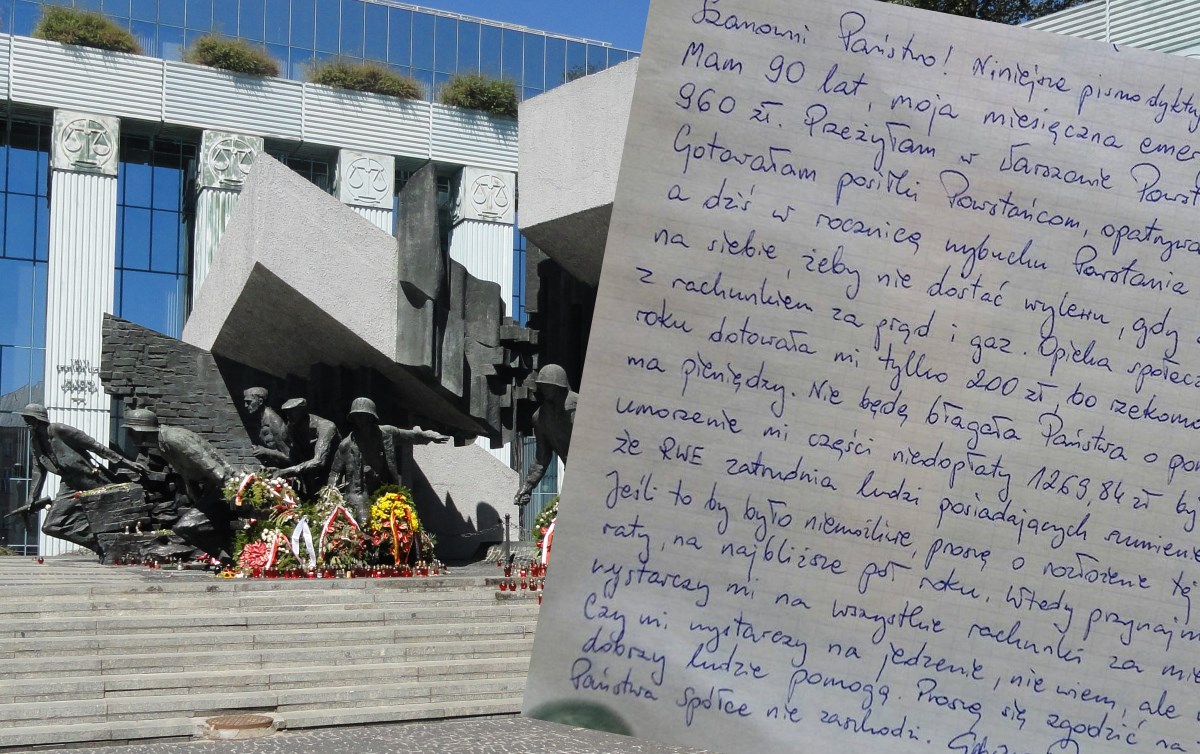 Szanowni Państwo! Niniejsze pismo dyktuj
Mam 90 lat, moja miesięczna emer
960 zł. Przeżyłam w Warszawie Powst
Gotowałam posiłki Powstańcom, opatrywa
a dziś w rocznicę wybuchu Powstania
na siebie, żeby nie dostać wylewu, gdy
z rachunkiem za prąd i gaz. Opieka społecz
roku dotowała mi tylko 200 zł, bo rzekomo
ma pieniędzy. Nie będę błagała Państwa o po
umorzenie mi części niedopłaty 1269,84 zł by
że RWE zatrudnia ludzi posiadających sumienie
Jeśli to by było niemożliwe, proszę o rozłożenie tę
raty, na najbliższe pół roku. Wtedy przynajm
wystarczy mi na wszystkie rachunki za mie
Czy mi wystarczy na jedzenie, nie wiem, ale
dobrzy ludzie pomogą. Proszę się zgodzić na
Państwa spółce nie zaszkodzi.